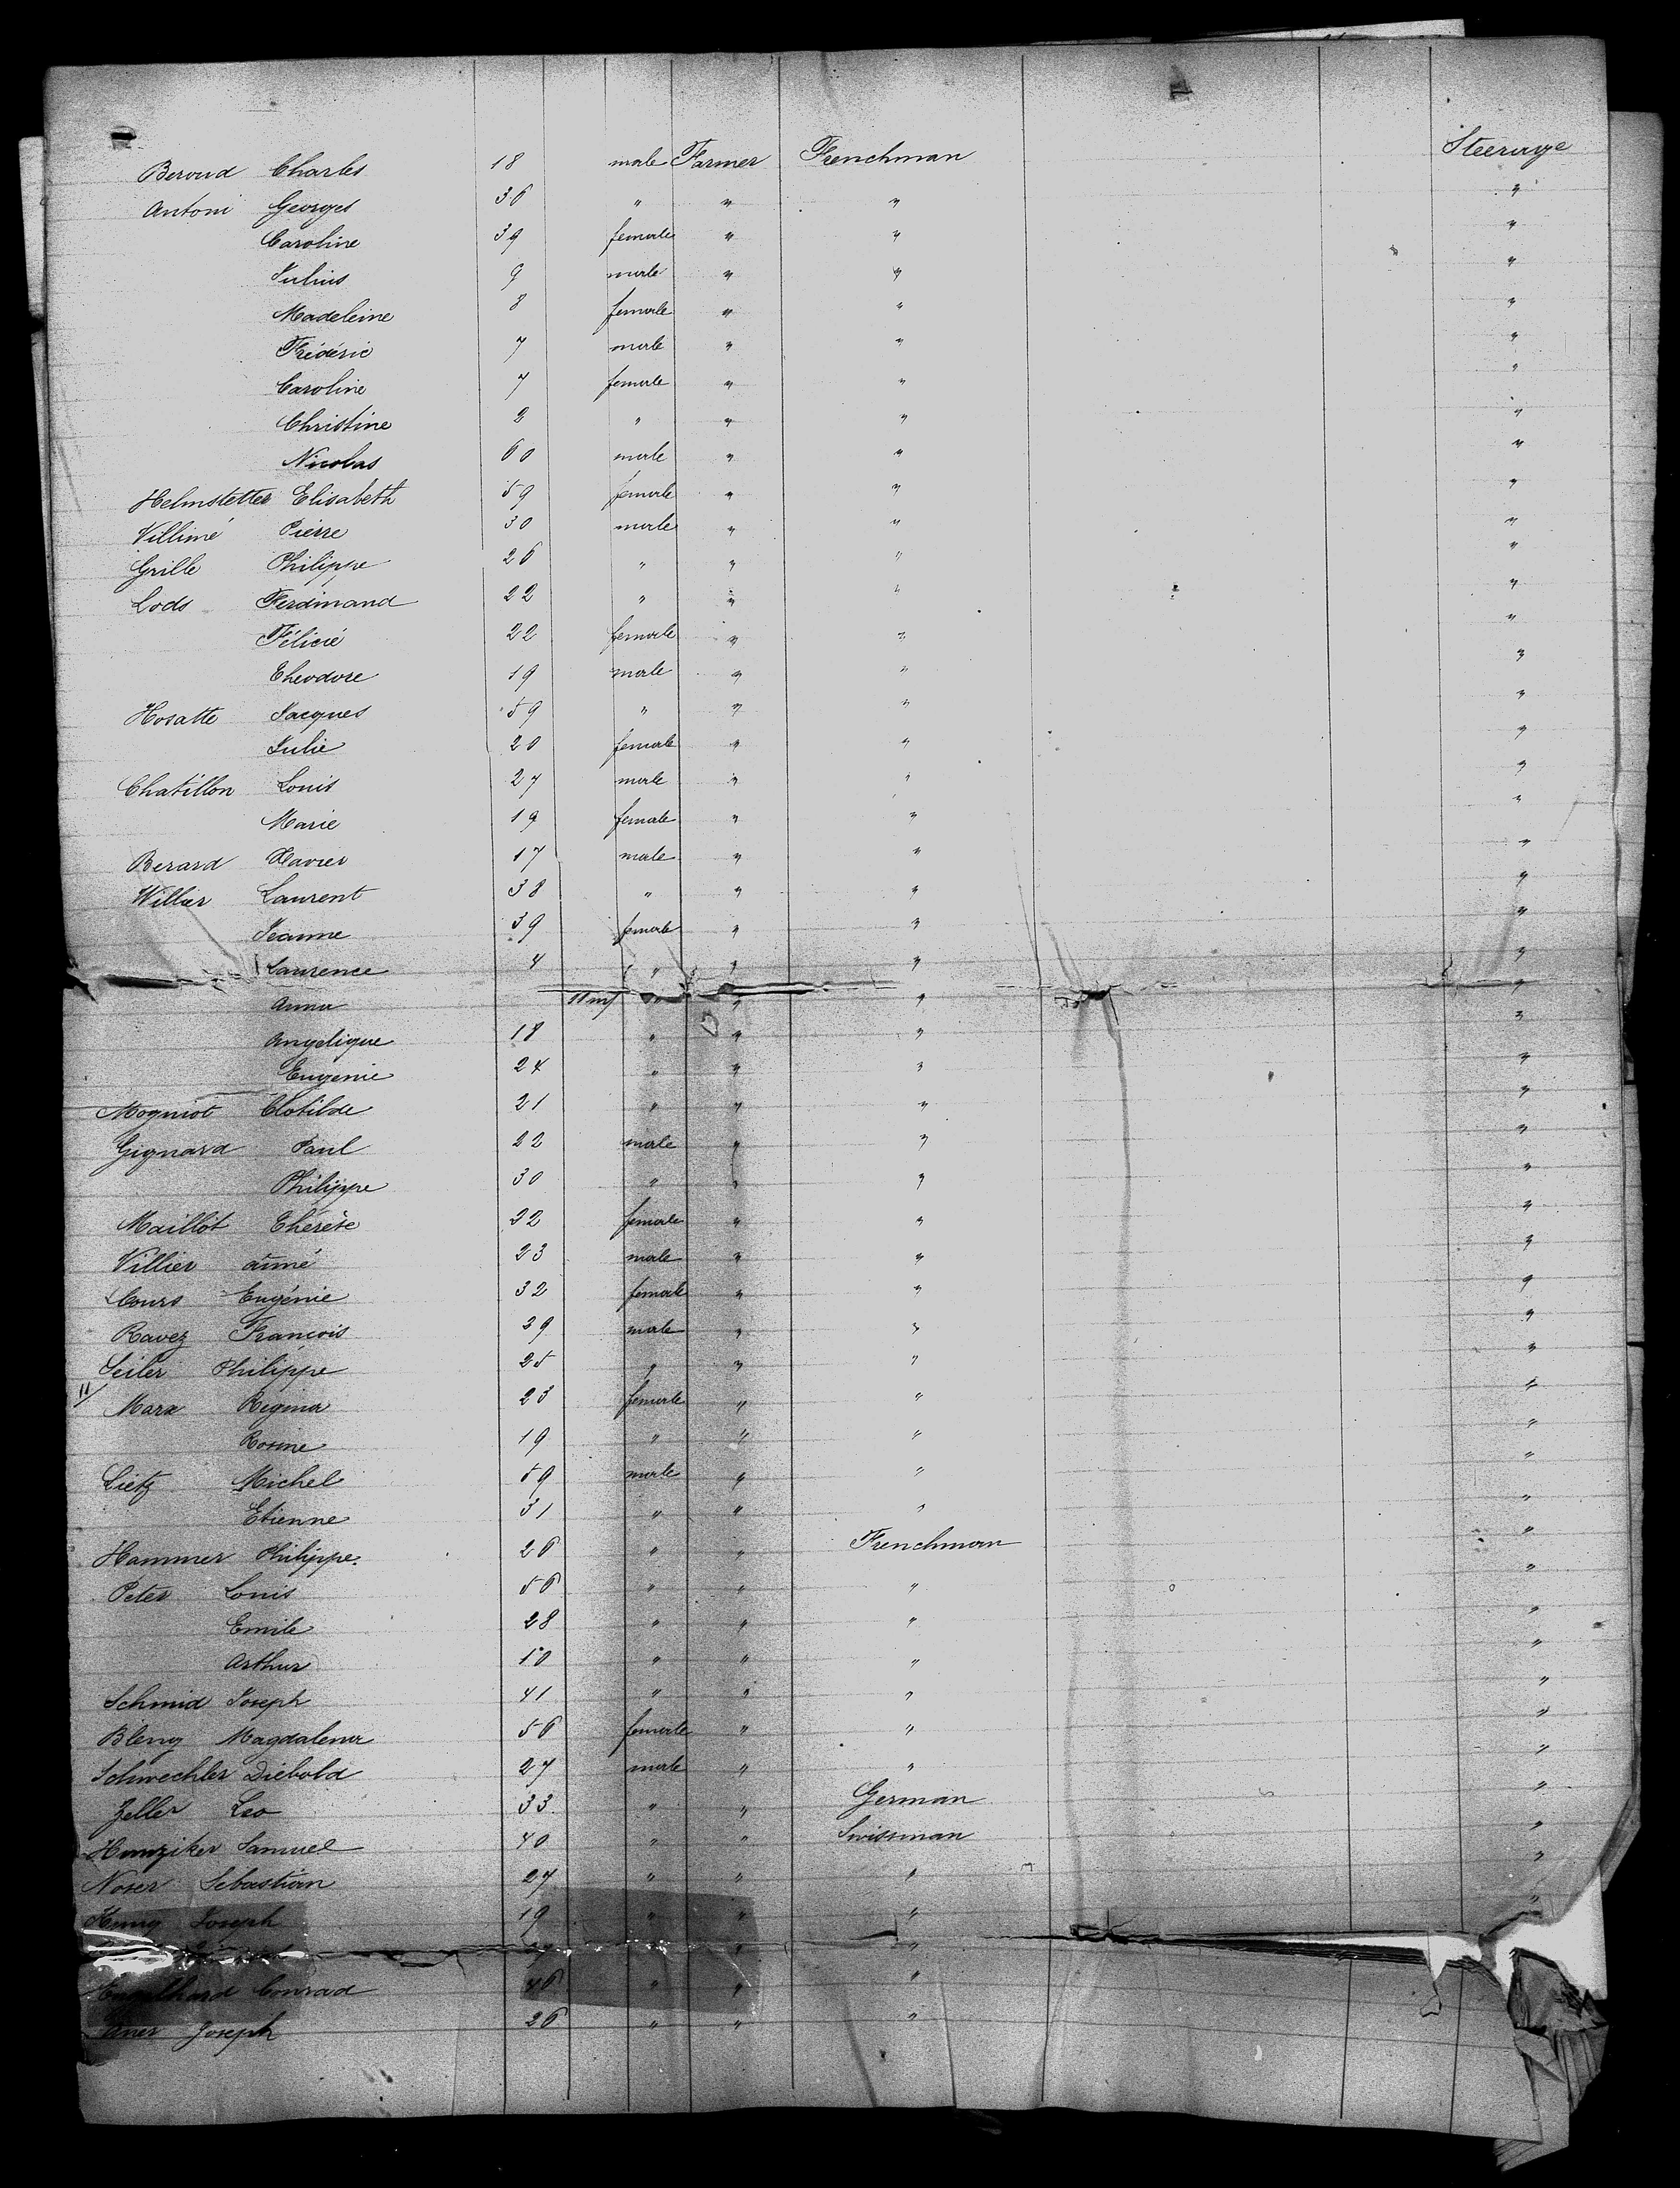 Beroud Charles 18 male Farmer Frenchman Steerage
Antoni Georges 36 " " " "
Caroline 39 female " " "
Julius 9 male " " "
Madeleine 8 female " " "
Frédéric 7 male " " "
Caroline 7 female " " "
Christine 2 " " " "
Nicolas 60 male " " "
Helmstetter Elisabeth 59 female " " "
Villimé Pierre 30 male " " "
Grille Philippe 26 " " " "
Lods Ferdinand 22 " " " "
Félicié 22 female " " "
Theodore 19 male " " "
Hosatte Jacques 59 " " " "
Julie 20 female " " "
Chatillon Louis 27 male " " "
Marie 19 female " " "
Berard Xavier 17 male " " "
Willier Laurent 38 " " " "
Jeanne 39 female " " "
Laurence 4 " " " "
Anna 11 m/ " " " "
Angelique 18 " " " "
Eugenie 24 " " " "
Mogniot Clotilde 21 " " " "
Gignard Paul 22 male " " "
Philippe 30 " " " "
Maillot Therèse 22 female " " "
Villier aimé 23 male " " "
Cours Eugénie 32 female " " "
Ravez Francois 29 male " " "
Seiler Philippe 25 " " " "
11/
Marx Regina 23 female " " "
Rosine 19 " " " "
Lietz Michel 59 male " " "
Etienne 31 " " " "
Hammer Philippe. 26 " " Frenchman "
Peter Louis 56 " " " "
Emile 28 " " " "
Arthur 10 " " " "
Schmid Joseph 41 " " " "
Bleny Magdalena 56 female " " "
Schwechler Diebold 27 male " " "
Zeller Leo 33 " " German "
Hunziker Samuel 40 " " Swissman "
Noser Sebastian 27 " " " "
Joseph 19 " " " "
" "
Engelhard Conrad 46 " " "
Joseph 26 " " "